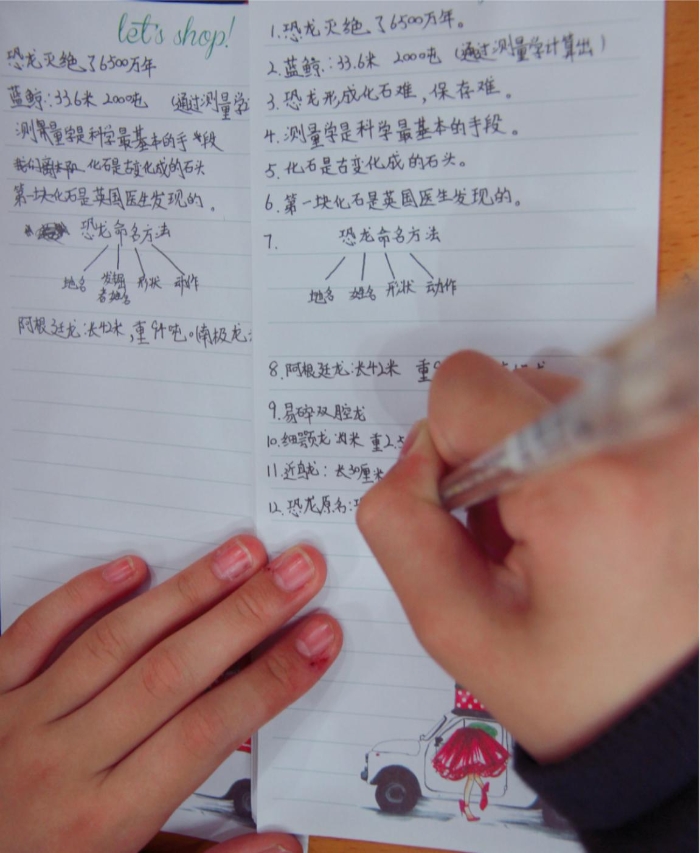 let's shop!
恐龙灭绝了6500万年
蓝鲸:33.6米 2000吨 (通过测量学
测量学是科学最基本的手段
化石是古变化成的石头
第一块化石是英国医生发现的。
恐龙命名方法
地名 发掘者姓名 形状 动作
阿根廷龙:长42米,重 吨。南极龙
1.恐龙灭绝了6500万年。
2.蓝鲸:33.6米 2000吨 (通过测量学计算出)
3.恐龙形成化石难,保存难。
4.测量学是科学最基本的手段。
5.化石是古变化成的石头。
6.第一块化石是英国医生发现的。
7. 恐龙命名方法
地名 姓名 形状 动作
8.阿根廷龙:长42米 重
9.易碎双腔龙
10.细颚龙 米 重2.5
11.近鸟龙:长30厘米
12.恐龙原名: